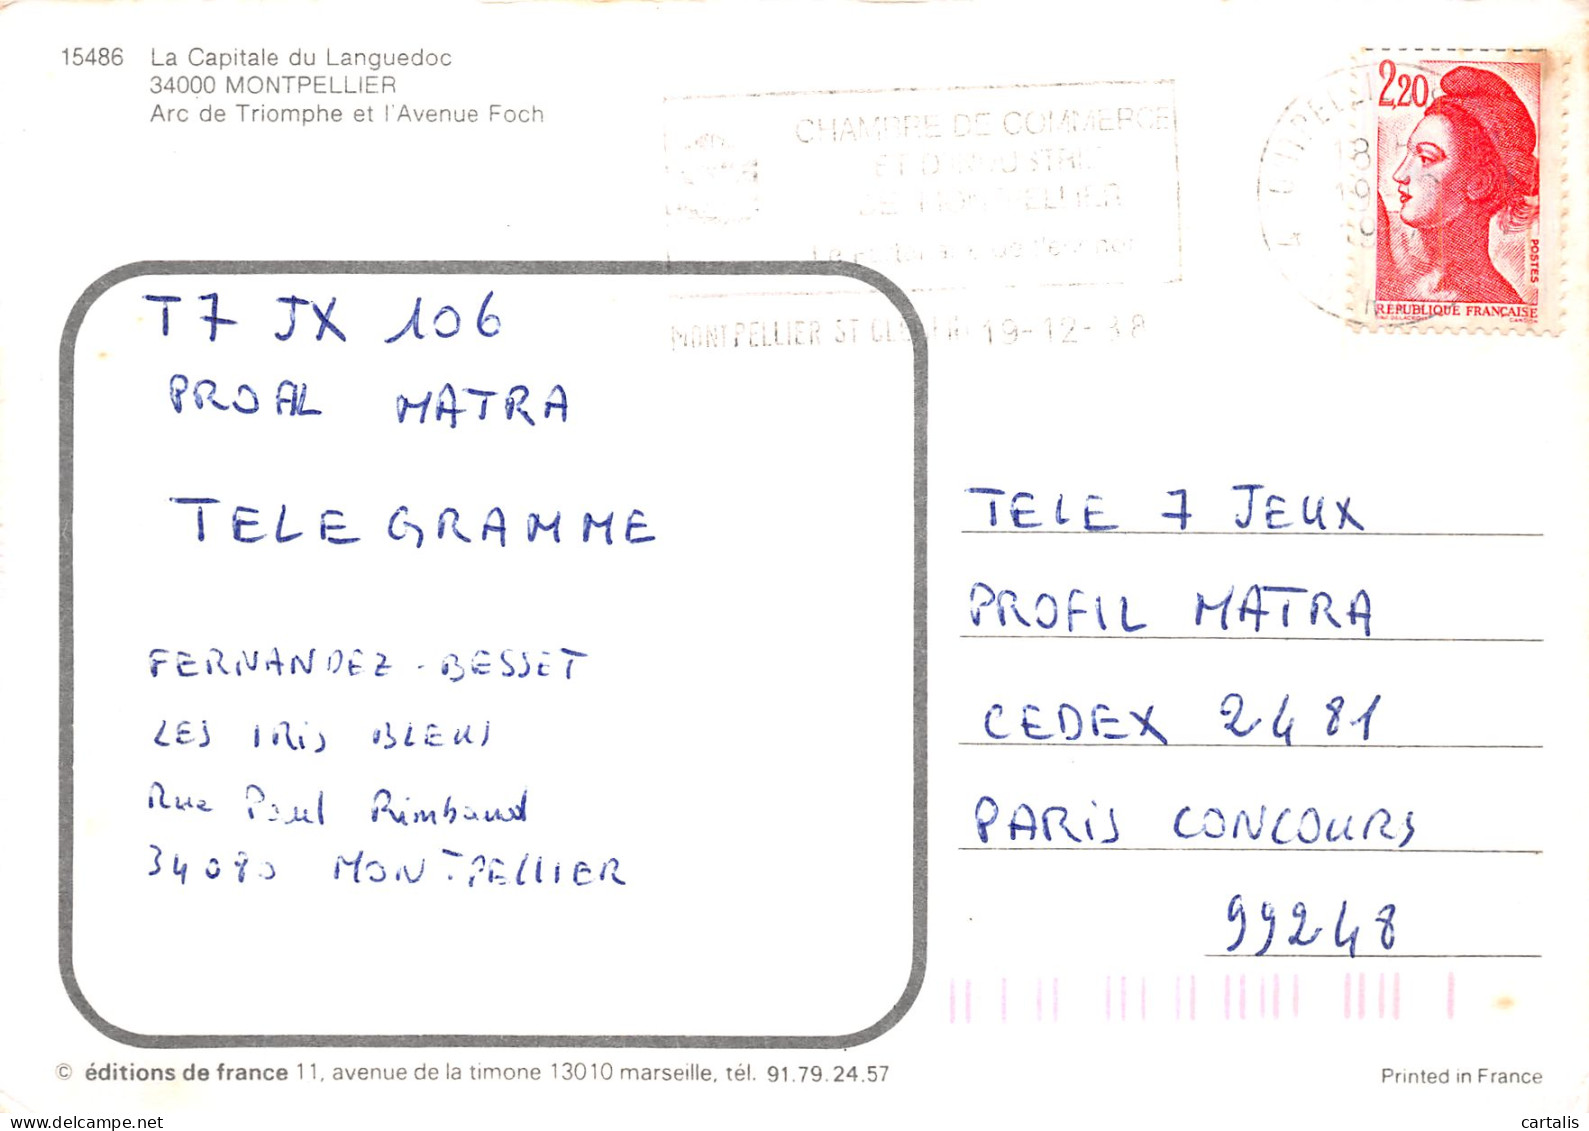 15486 La Capitale du Languedoc
34000 MONTPELLIER
Arc de Triomphe et l'Avenue Foch
CHAMBRE DE COMMERCE
ET D'INDUSTRIE
DE MONTPELLIER
MONTPELLIER ST CLEMENT 19-12-88
2,20
POSTES
REPUBLIQUE FRANÇAISE
T7 JX 106
PROFIL MATRA
TELEGRAMME
FERNANDEZ - BESSET
LES IRIS BLEUS
Rue Paul Rimbaud
34080 MONTPELLIER
TELE 7 JEUX
PROFIL MATRA
CEDEX 2481
PARIS CONCOURS
99248
© éditions de france 11, avenue de la timone 13010 marseille, tél. 91.79.24.57
Printed in France
delcampe.net
cartalis